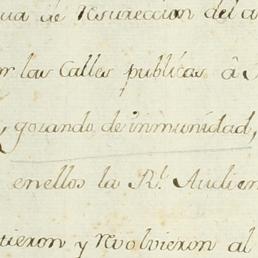 ua de resureccion del a
or las Calles publicas â
, gozando de inmunidad,
enellos la Rl. Audien
tieron y revolvieron al